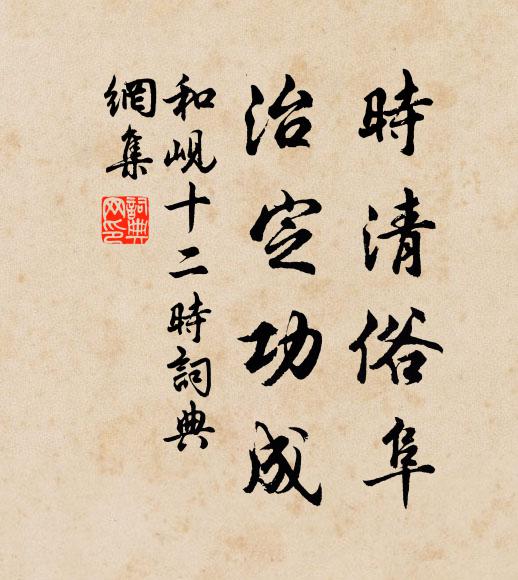 時清俗阜
治定功成
和峴十二時詞典
網集
詞典
网印